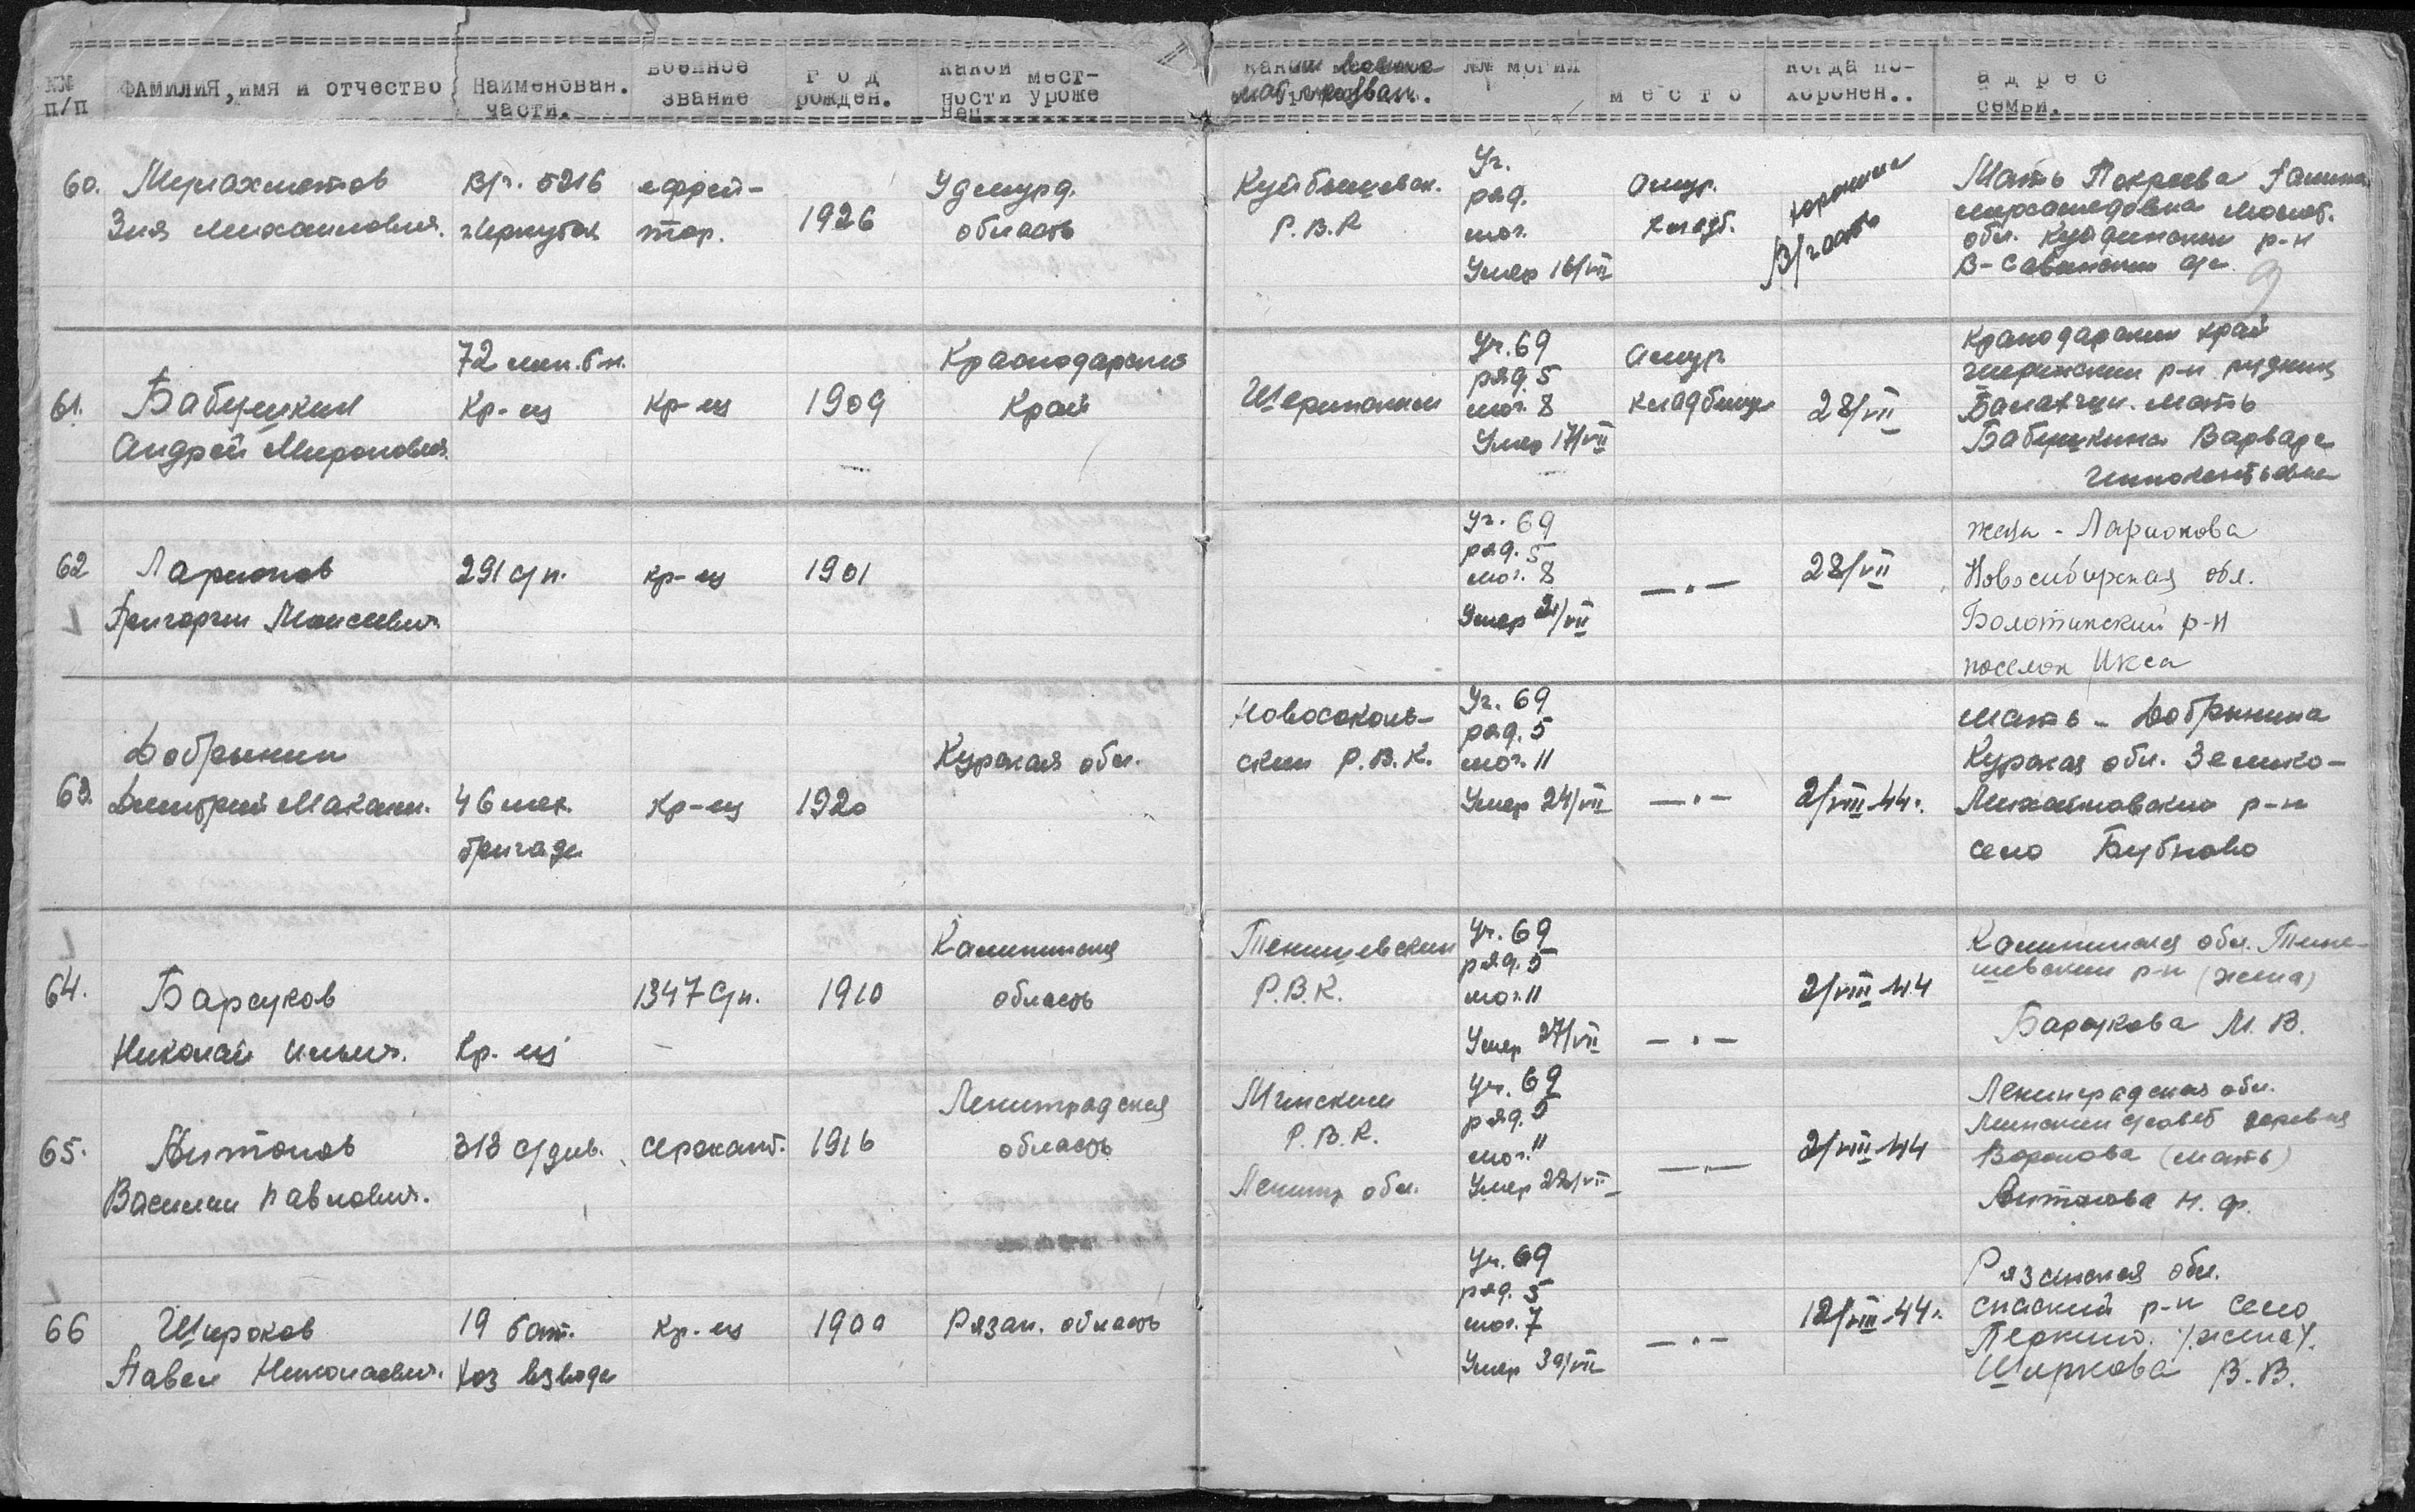 №№ п/п
ФАМИЛИЯ, имя и отчество
Наименован. части.
военное звание
год рожден.
какой мест- ности уроже нец.
каким
мob. призван.
№№ могил
место
когда по- хоронен..
адрес семьи.
60.
Зия
в/ч. 5216
ефрей-
тор.
1926
Удмурд.
область
Куйбышевск.
Р.В.К
Уч.
ряд.
мог.
Умер 16/VII
Амур.
кладб.
хоронила
в/часть
Мать
обл. р-н
61.
Бабушкин
Андрей Миронович.
72 мин. б-н.
Кр-ец
Кр-ец
1909
Краснодарский
Край
Ширинским
Уч. 69
ряд. 5
мог. 8
Умер 17/VII
Амур.
кладбище
28/VII
Краснодарский край
р-н рудник
мать
Бабушкина Варвара
Инокентьевна
62
Ларионов
Григорий Моисеевич
291 сп.
кр-ец
1901
уч. 69
ряд. 5
мог. 8
Умер 21/VII
— " —
28/VII
жена - Ларионова
Новосибирская обл.
Болотинский р-н
поселок Икса
63.
Добрынин
Дмитрий Макаки.
46 мех.
бригада
Кр-ец
1920
Курская обл.
Новосоколь-
ским Р.В.К.
Уч. 69
ряд. 5
мог. 11
Умер 24/VII
— " —
2/VIII 44г.
мать - Добрынина
Курская обл.
Михайловский р-н
село Бубново
64.
Барсуков
Николай Ильич.
Кр. ец
1347 сп.
1910
Калининская
область
Тенишевским
Р.В.К.
Уч. 69
ряд. 5
мог. 11
Умер 27/VII
— " —
2/VIII 44
Калининская обл. Тене-
шевский р-н (жена)
Барсукова М. В.
65.
Антонов
Василий Павлович.
313 с/див.
сержант.
1916
Ленинградская
область
Мгинским
Р.В.К.
Ленингр. обл.
Уч. 69
ряд. 5
мог. 11
Умер 28/VII
— " —
2/VIII 44
Ленинградская обл.
с/совет деревня
Воронова (мать)
Антонова Н. Ф.
66
Широков
Павел Николаевич.
19 бат.
хоз взвода
Кр. ец
1900
Рязан. область
Уч. 69
ряд. 5
мог. 7
Умер 30/VII
— " —
12/VIII 44г.
Рязанская обл.
спаский р-н село
Перкино. /жена/.
Ширкова В. В.